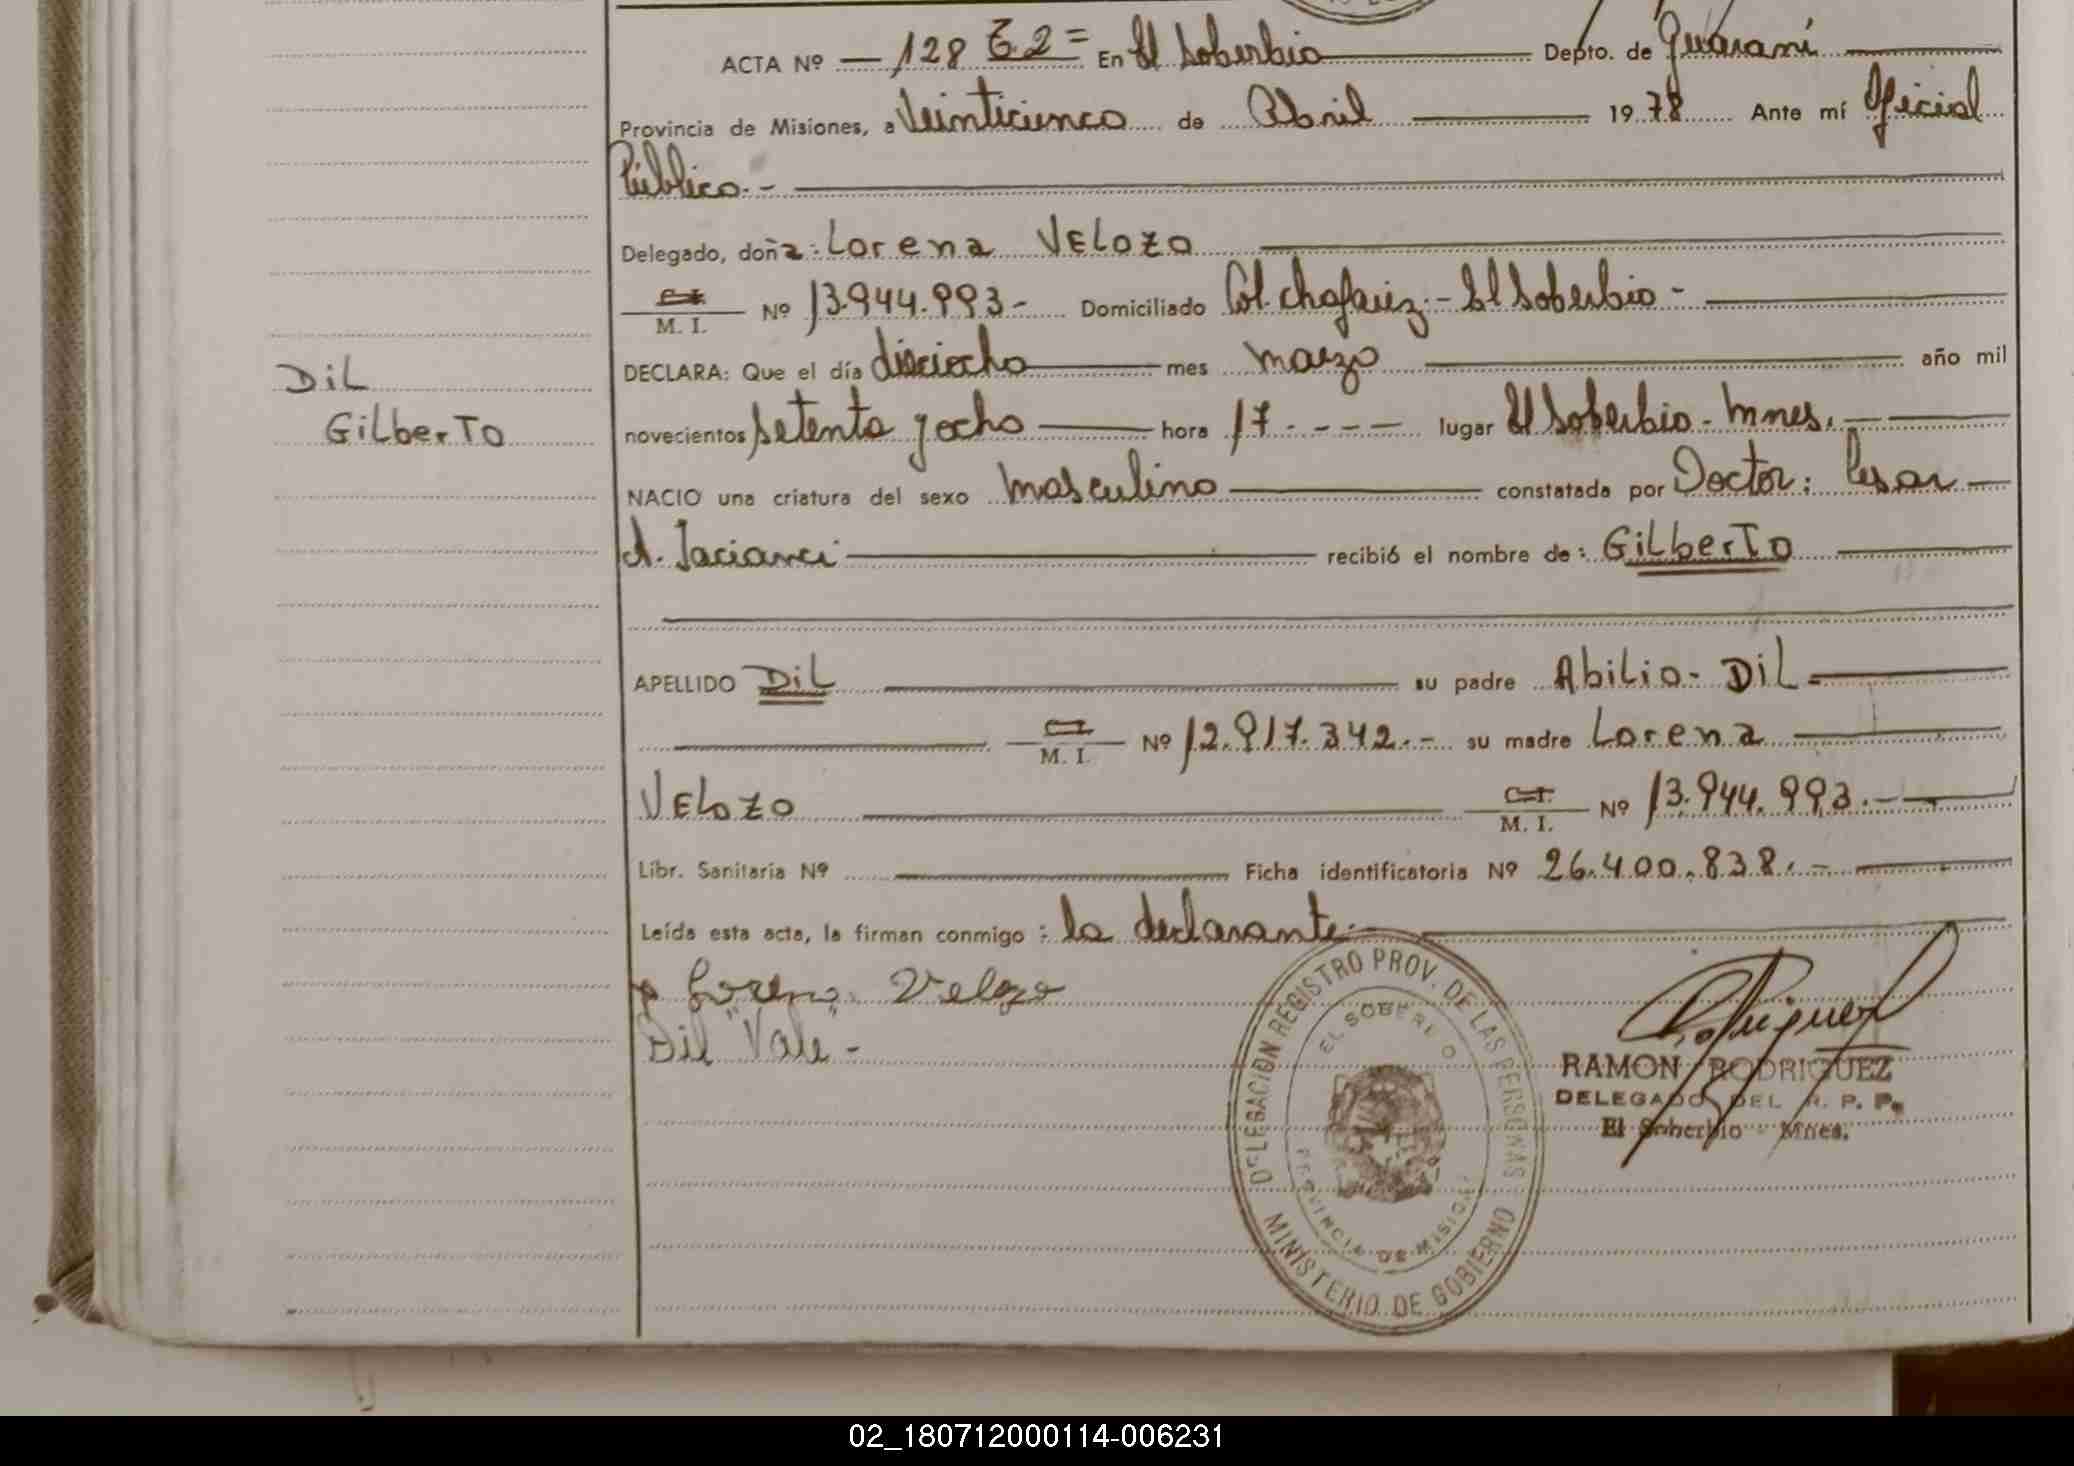 ACTA Nº — 128 T. 2 = En El Soberbio Depto. de Guaraní
Provincia de Misiones, a Veinticinco de Abril 1978 Ante mí Oficial
Público.-
Delegado, doña: Lorena VELOZO
C.I. M. I. Nº 13.944.993- Domiciliado Col. chafariz.- El Soberbio-
DECLARA: Que el día dieciocho mes marzo año mil
Dil
novecientos setenta y ocho hora 17 ---- lugar El Soberbio - Mnes.
GilberTo
NACIO una criatura del sexo masculino constatada por Doctor: Cesar
A. recibió el nombre de: GilberTo
APELLIDO Dil su padre Abilio- Dil-
C.I. M. I. Nº 12.917.342.- su madre Lorena
VELOZO C.I. M. I. Nº 13.944.993.-
Libr. Sanitaria Nº Ficha identificatoria Nº 26.400.838.-
Leída esta acta, la firman conmigo: la declarante.-
Lorena Velozo
Dil "Vale"-
DELEGACION REGISTRO PROV. DE LAS PERSONAS
EL SOBERBIO
PROVINCIA DE MISIONES
MINISTERIO DE GOBIERNO
RAMON RODRIGUEZ
DELEGADO DEL R. P. P.
El Soberbio - Mnes.
02_180712000114-006231